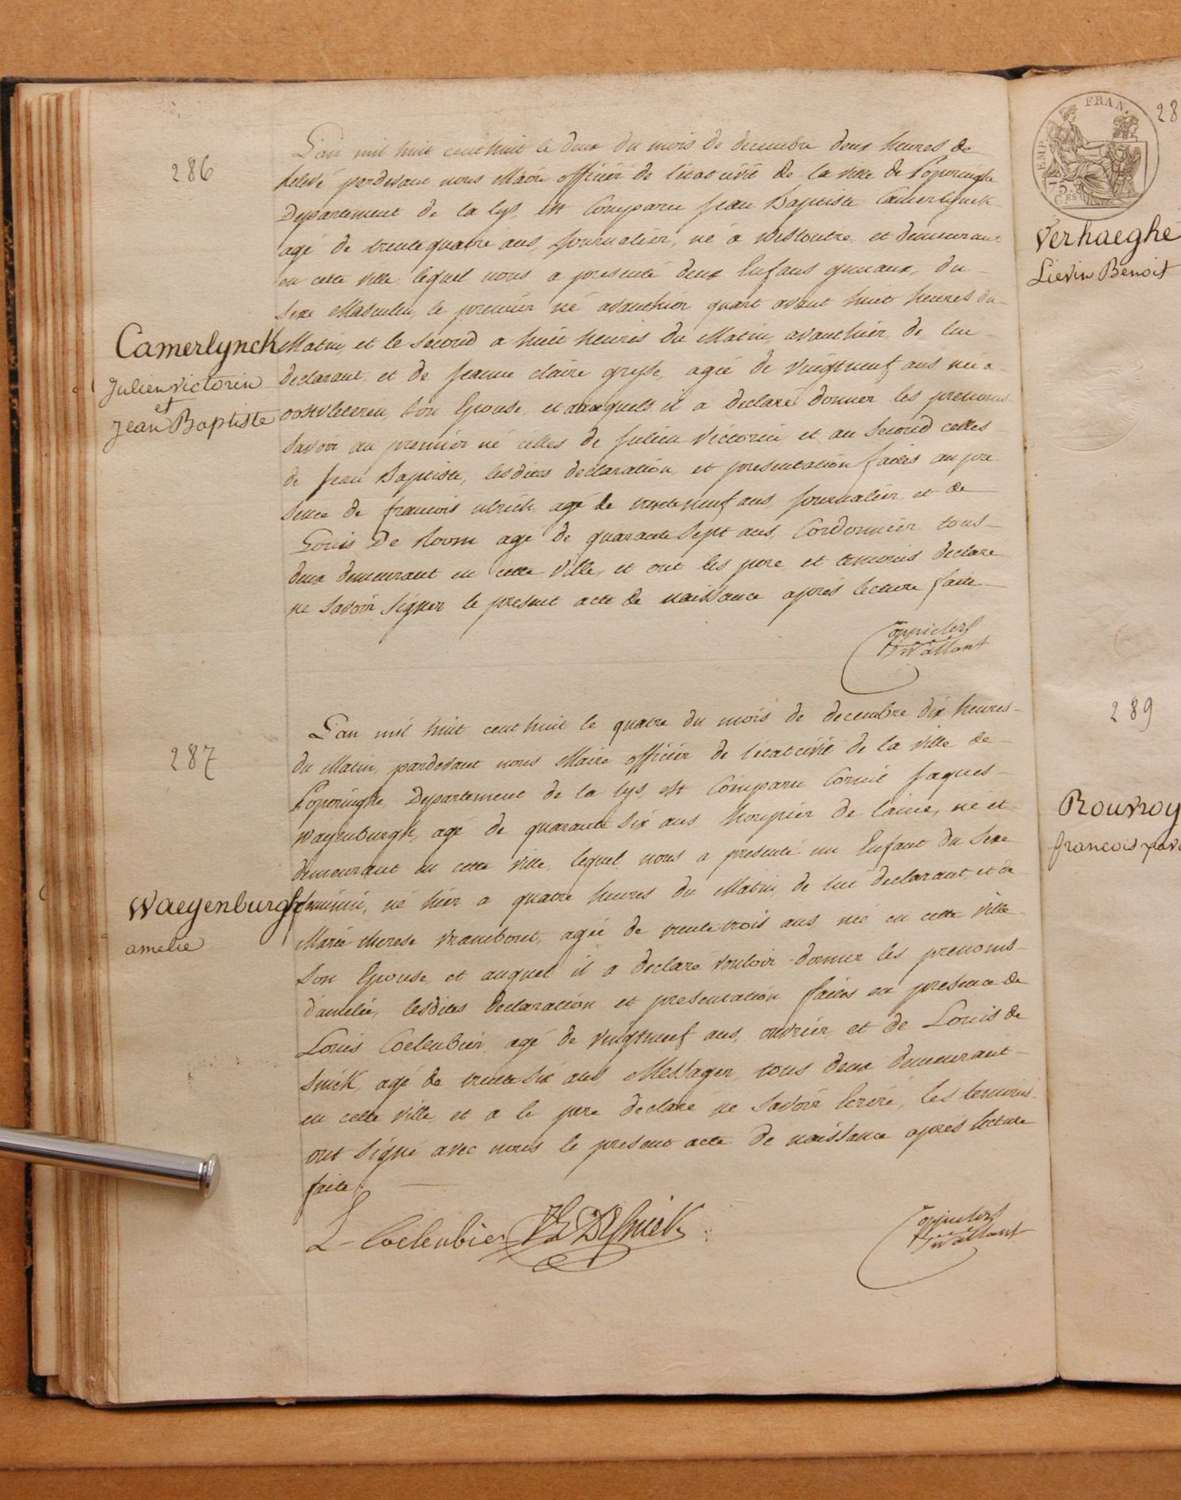 286
L'an mil huit cent huit le deux du mois de decembre deux heures de
relevé pardevant nous Maire officier de l'etat civil de la ville de Poperinghe
Departement de la lys, est Comparu Jean Baptiste Camerlynck
agé de trente quatre ans, Journalier, né a Westoutre, et demeurant
en cette ville lequel nous a presenté deux Enfans gumaux, du
sexe Masculin, le premier né avanthier quart avant huit heures du
Matin, et le second a huit heures du Matin, avanthier, de lui
declarant, et de Jeanne claire gryse, agée de vingtneuf ans née a
oostvleteren, son Epouse, et auxquels il a declaré donner les prenoms
savoir au premier né celles de Julien Victorin et au second celles
de Jean Baptiste, lesdites declaration, et presentation faites en pre
sence de francois ulrich, agé de trenteneuf ans, Journalier, et de
Louis De Room agé de quarante sept ans, Cordonnier, tous
deux demeurant en cette Ville, et ont les pere et temoins declaré
ne savoir signer le present acte de naissance après lecture faite
Camerlynck
Julien victorin
et
Jean Baptiste
287
L'an mil huit cent huit le quatre du mois de decembre dix heures
du Matin, pardevant nous Maire officier de l'etat civil de la ville de
Poperinghe, Departement de la lys, est Comparu Corneil Jaques
Waeyenburgh, agé de quarante six ans houpier de laine, né et
demeurant en cette ville, lequel nous a presenté un Enfant du Sexe
feminin, né hier a quatre heures du Matin, de lui declarant, et de
Marie therese Vrambout, agée de trente trois ans née en cette ville
son Epouse, et auquel il a declaré vouloir donner les prenoms
d'amélie, lesdites Declaration et presentation faites en presence de
Louis Coelenbier, agé de vingtneuf ans, ouvrier, et de Louis de
Snik, agé de trente six ans, Messager, tous deux demeurant
en cette ville, et a le pere declaré ne savoir Ecrire, les temoins
ont signé avec nous le present acte de naissance apres lecture
faite.
Waeyenburgh
amelie
L Coelenbier
28
EMP. FRAN.
75 C
Verhaeghe
Lievin Benoit
289
Rouvroy
francois